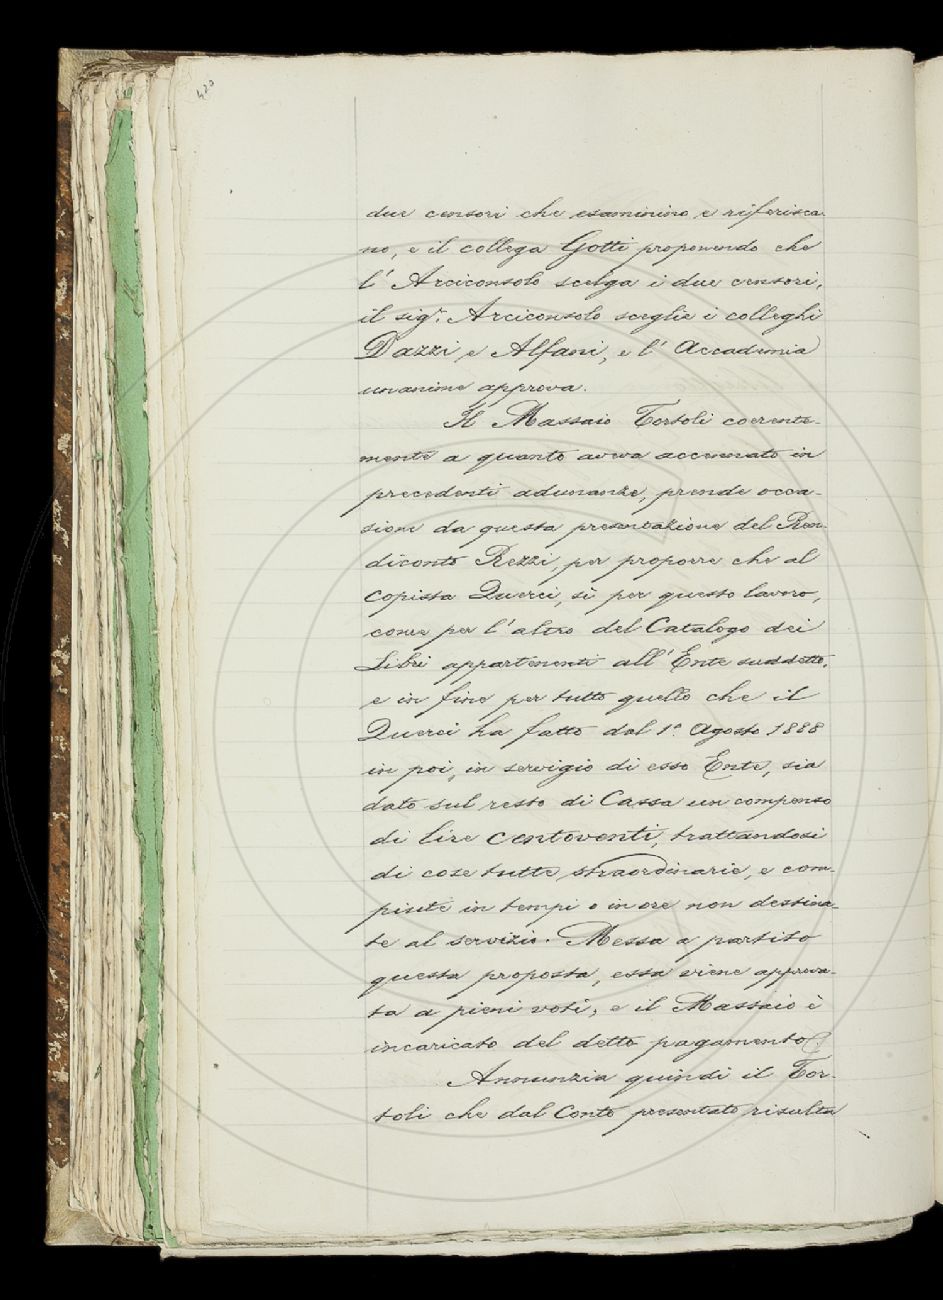 420
due censori che esaminino e riferisca-
no, e il collega Gotti proponendo che
l' Arciconsolo scelga i due censori,
il sigr. Arciconsolo sceglie i colleghi
Dazzi e Alfani, e l' Accademia
unanime approva.
Il Massaio Tortoli coerente-
mente a quanto aveva accennato in
precedenti adunanze, prende occa-
sione da questa presentazione del Ren-
diconto Rezzi, per proporre che al
copista Querci, sì per questo lavoro,
come per l' altro del Catalogo dei
Libri appartenenti all' Ente suddetto,
e in fine per tutto quello che il
Querci ha fatto dal 1° Agosto 1888
in poi, in servigio di esso Ente, sia
dato sul resto di Cassa un compenso
di lire centoventi, trattandosi
di cose tutte straordinarie, e com-
piute in tempi o in ore non destina-
te al servizio. Messa a partito
questa proposta, essa viene approva-
ta a pieni voti; e il Massaio è
incaricato del detto pagamento
Annunzia quindi il Tor-
toli che dal Conto presentato risulta